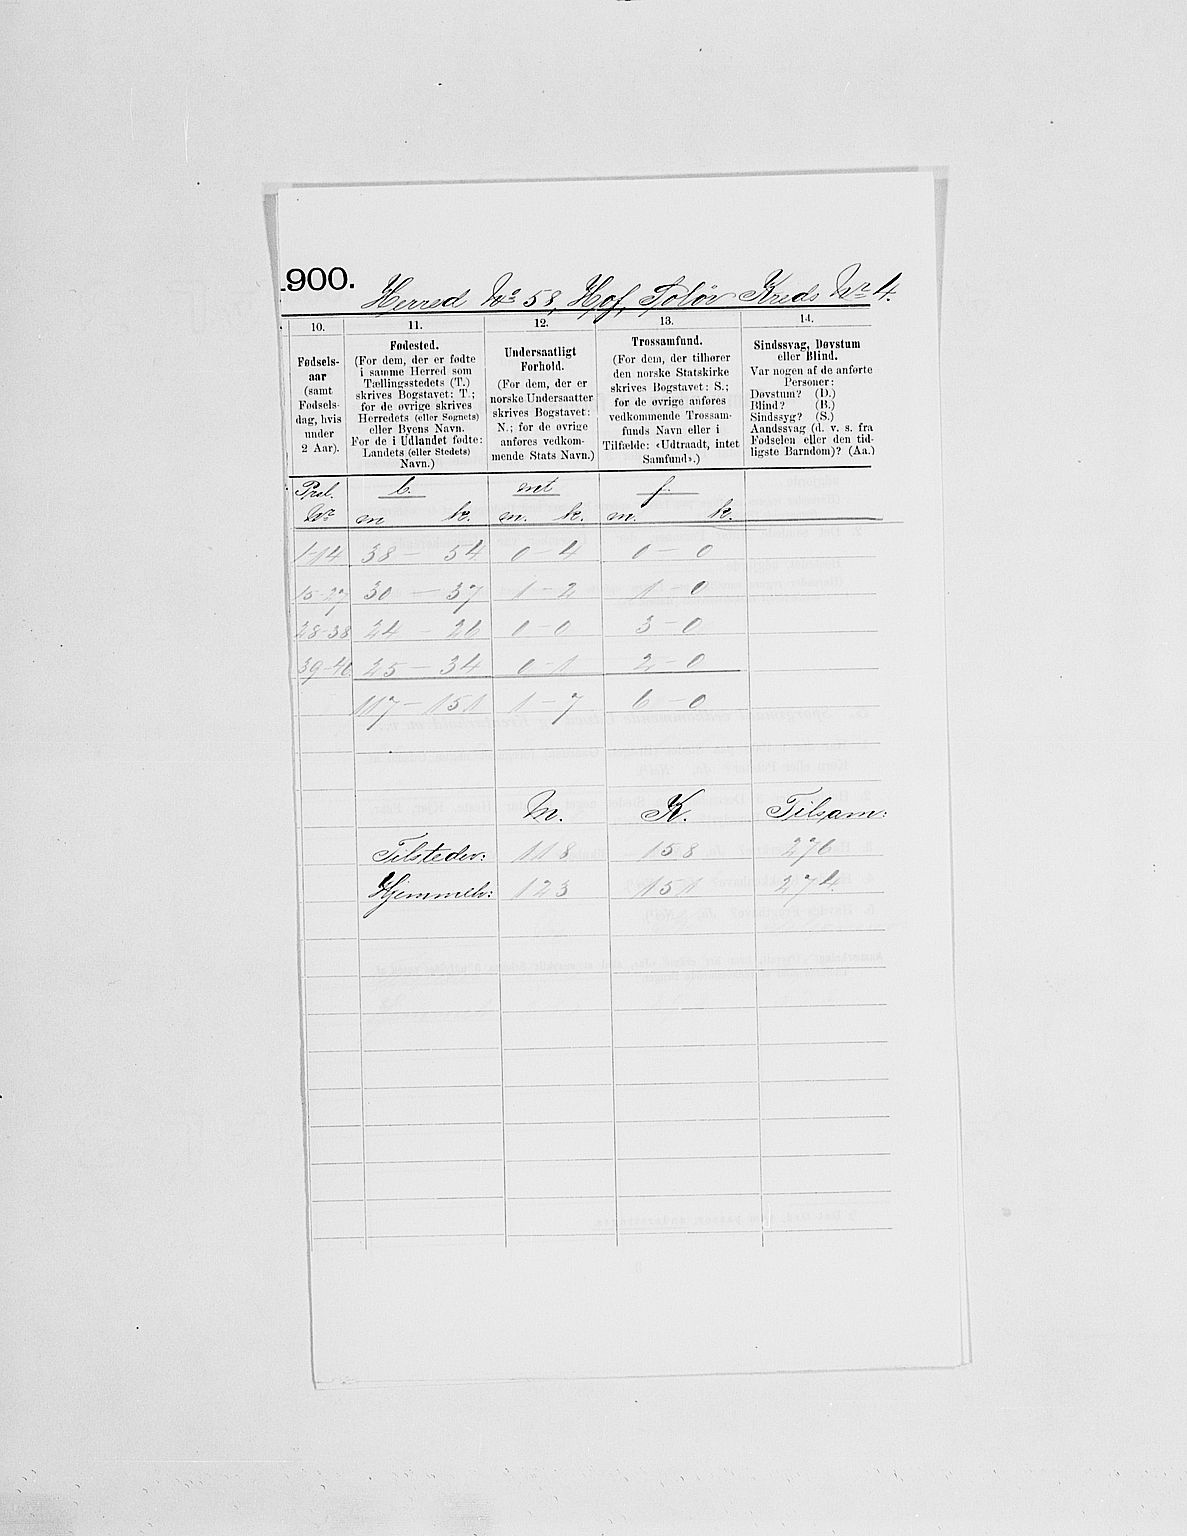 1900. Herred No 58, Hof, Solør Kreds Nr 4.
10. 11. 12. 13. 14.
Fødsels-
aar
(samt
Fødsels-
dag, hvis
under
2 Aar).
Fødested.
(For dem, der er fødte
i samme Herred som
Tællingsstedets (T.)
skrives Bogstavet: T.;
for de øvrige skrives
Herredets (eller Sognets)
eller Byens Navn.
For de i Udlandet fødte:
Landets (eller Stedets)
Navn.)
Undersaatligt
Forhold.
(For dem, der er
norske Undersaatter
skrives Bogstavet:
N.; for de øvrige
anføres vedkom-
mende Stats Navn.)
Trossamfund.
(For dem, der tilhører
den norske Statskirke
skrives Bogstavet: S.;
for de øvrige anføres
vedkommende Trossam-
funds Navn eller i
Tilfælde: «Udtraadt, intet
Samfund».)
Sindssvag, Døvstum
eller Blind.
Var nogen af de anførte
Personer:
Døvstum? (D.)
Blind? (B.)
Sindssyg? (S.)
Aandssvag (d. v. s. fra
Fødselen eller den tid-
ligste Barndom)? (Aa.)
b. mt f.
Nr m k. m. k. m. k.
1-14 38 — 54 0 – 4 0 – 0
15-27 30 — 37 1 – 2 1 – 0
28-38 24 — 26 0 – 0 3 – 0
39-46 25 — 34 0 – 1 2 – 0
117 – 151 1 – 7 6 – 0
M. K. Tilsam:
Tilstedev: 118 158 276
Hjemmeh: 123 151 274